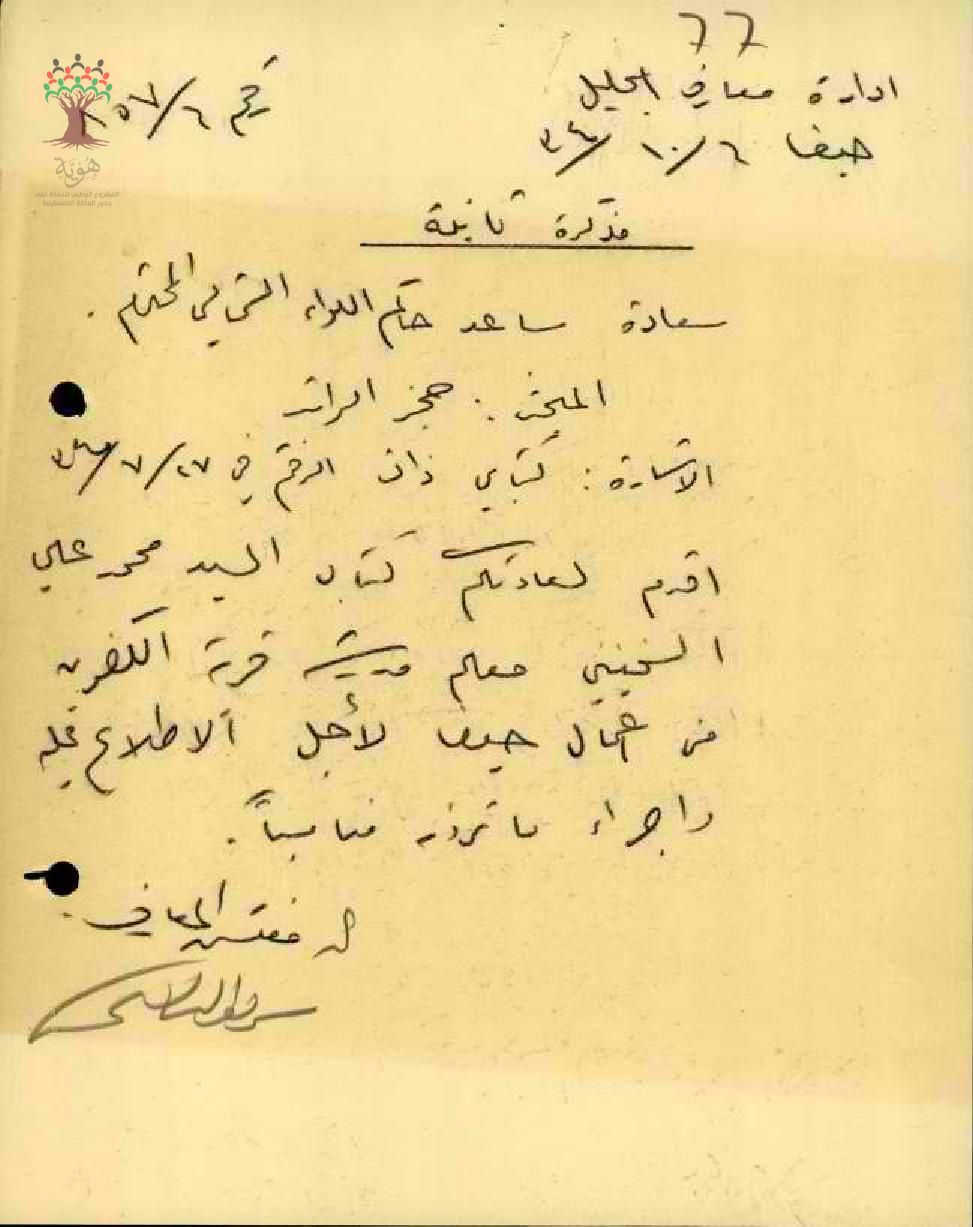 77
ادارة معارف الجليل
رقم ٨٥٧/٦
حيفا ٦/١٠/٣٤
هُوِيَّة
المشروع الوطني للحفاظ على
جذور العائلة الفلسطينية
مذكرة ثانية
سعادة مساعد حاكم اللواء الشمالي المحترم .
المبحث : حجز الراتب
الاشارة : كتابي ذات الرقم في ٢٧/٧/٣٤
اقدم لسعادتكم كتاب السيد محمد علي
معلم مدرسة قرية الكفرين
من اعمال حيفا لأجل الاطلاع عليه
واجراء ما ترونه مناسباً .
مفتش المعارف